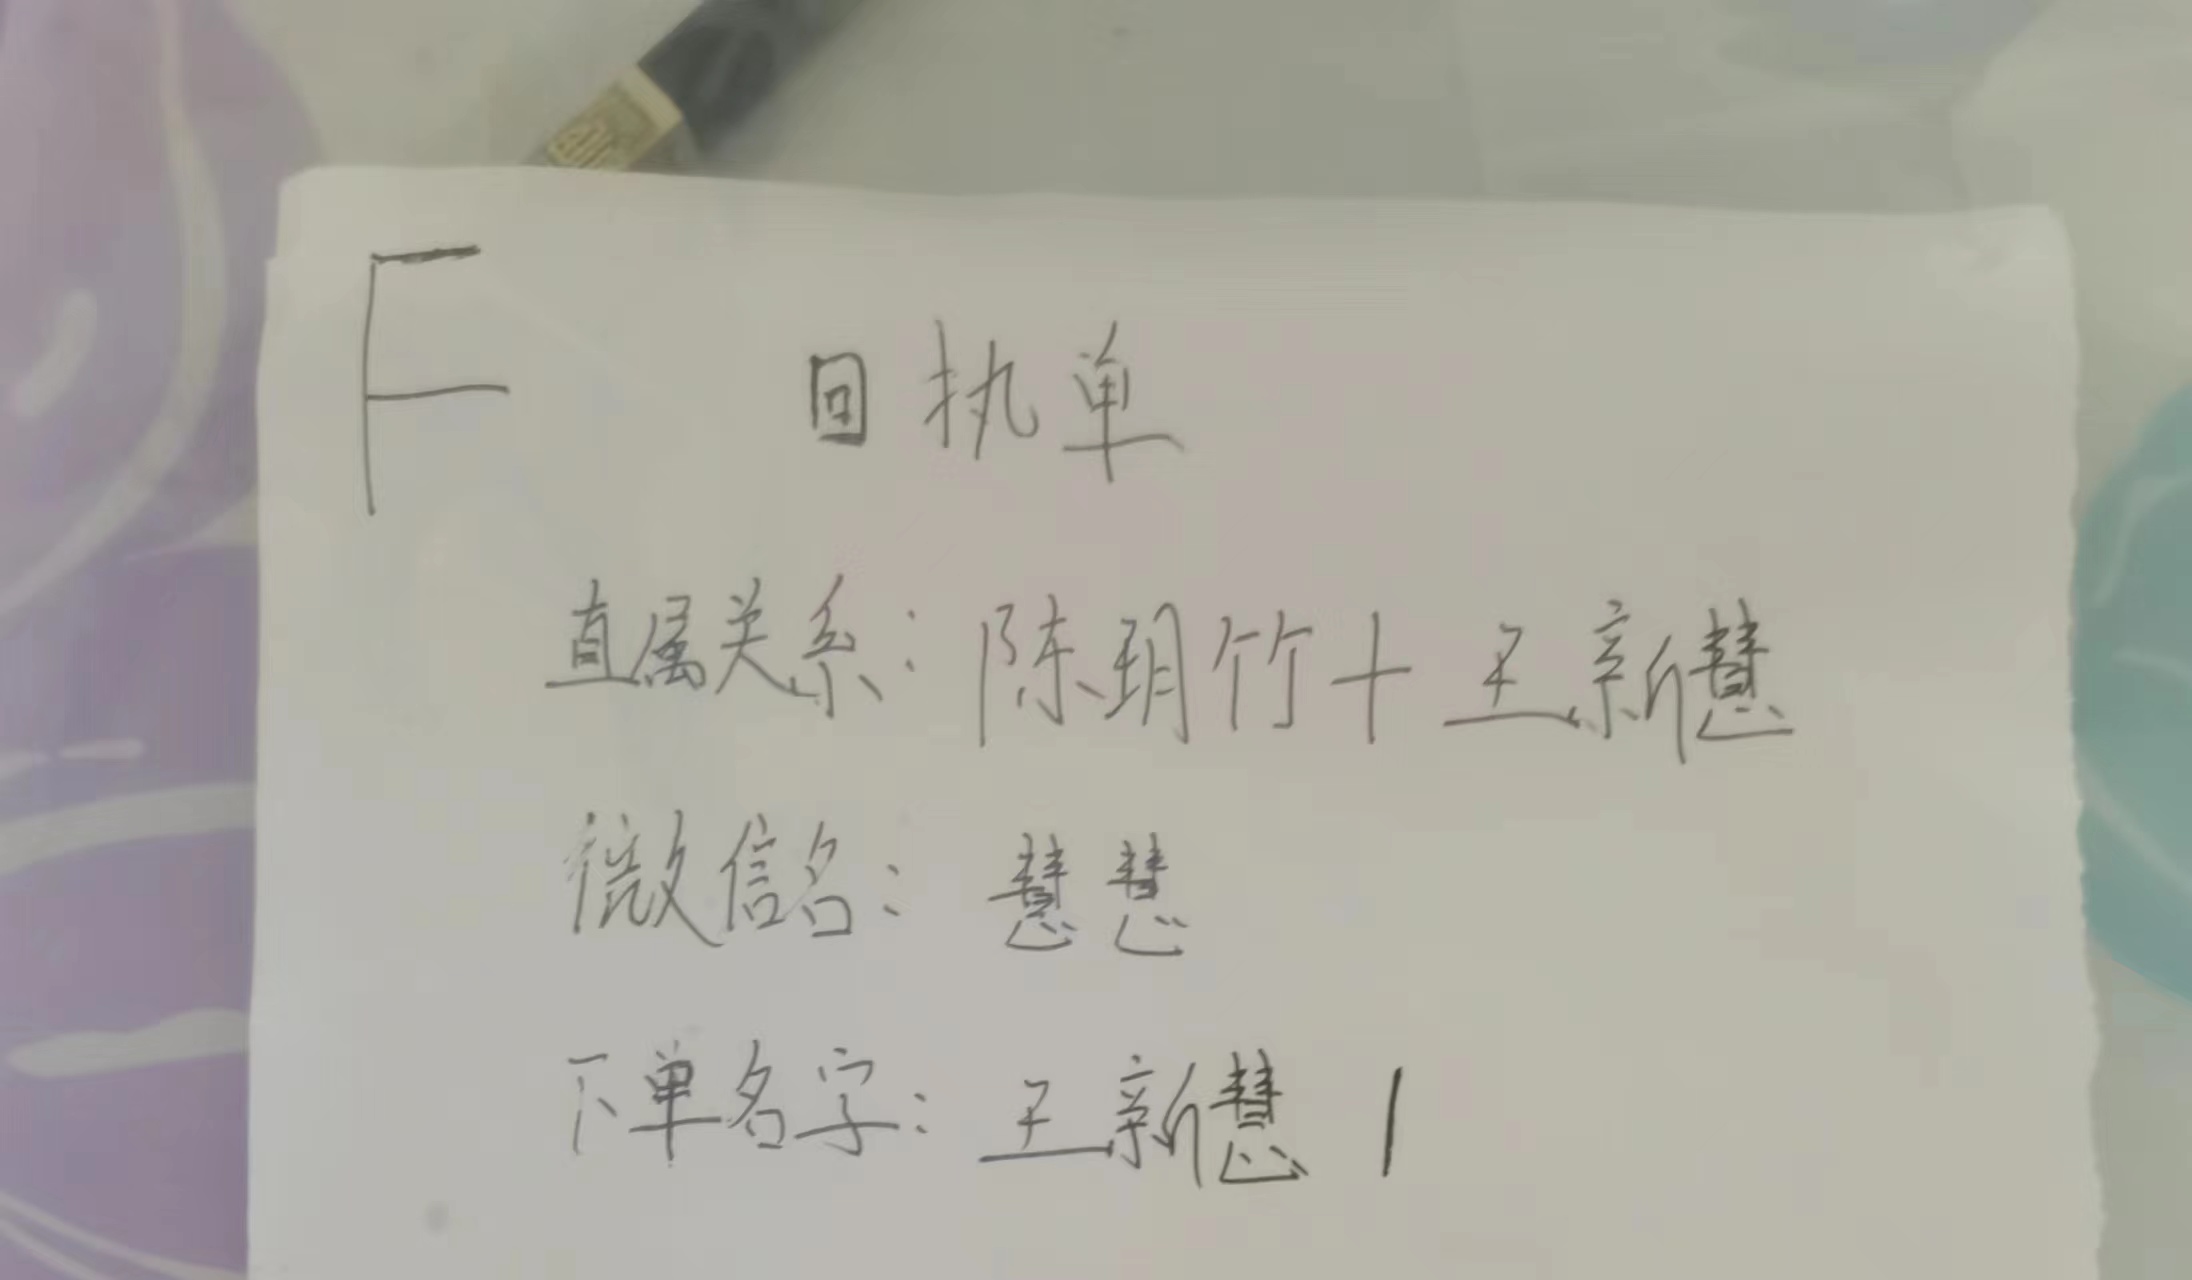 F
回执单
直属关系：陈玥竹+王新慧
微信名：慧慧
下单名字：王新慧 1